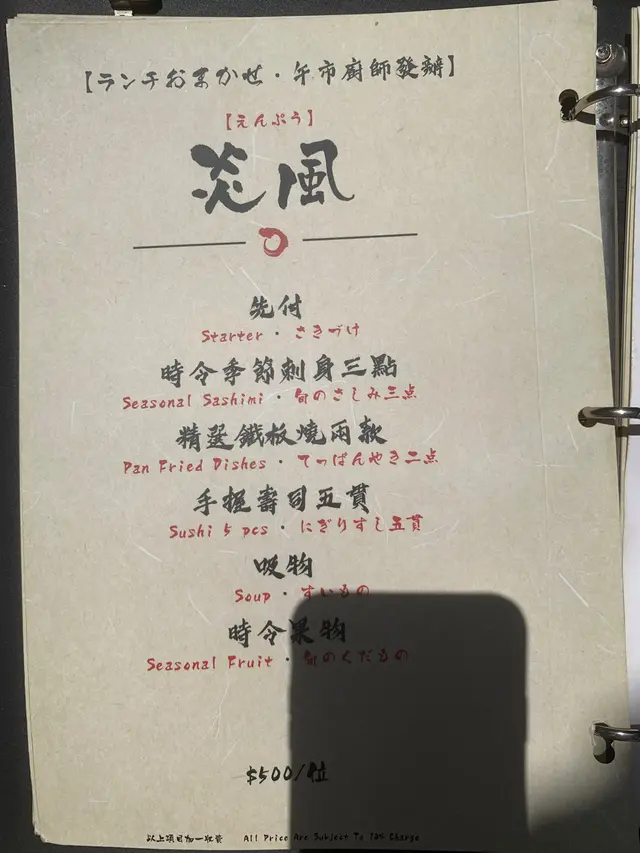 【ランチおまかせ・午市廚師發辦】
【えんぷう】
炎風
先付
Starter・さきづけ
時令季節刺身三點
Seasonal Sashimi・旬のさしみ三点
精選鐵板燒兩款
Pan Fried Dishes・てっぱんやき二点
手握壽司五貫
Sushi 5 pcs・にぎりすし五貫
吸物
Soup・すいもの
時令果物
Seasonal Fruit・旬のくだもの
$500/位
以上項目加一收費 All Price Are Subject To 10% Charge